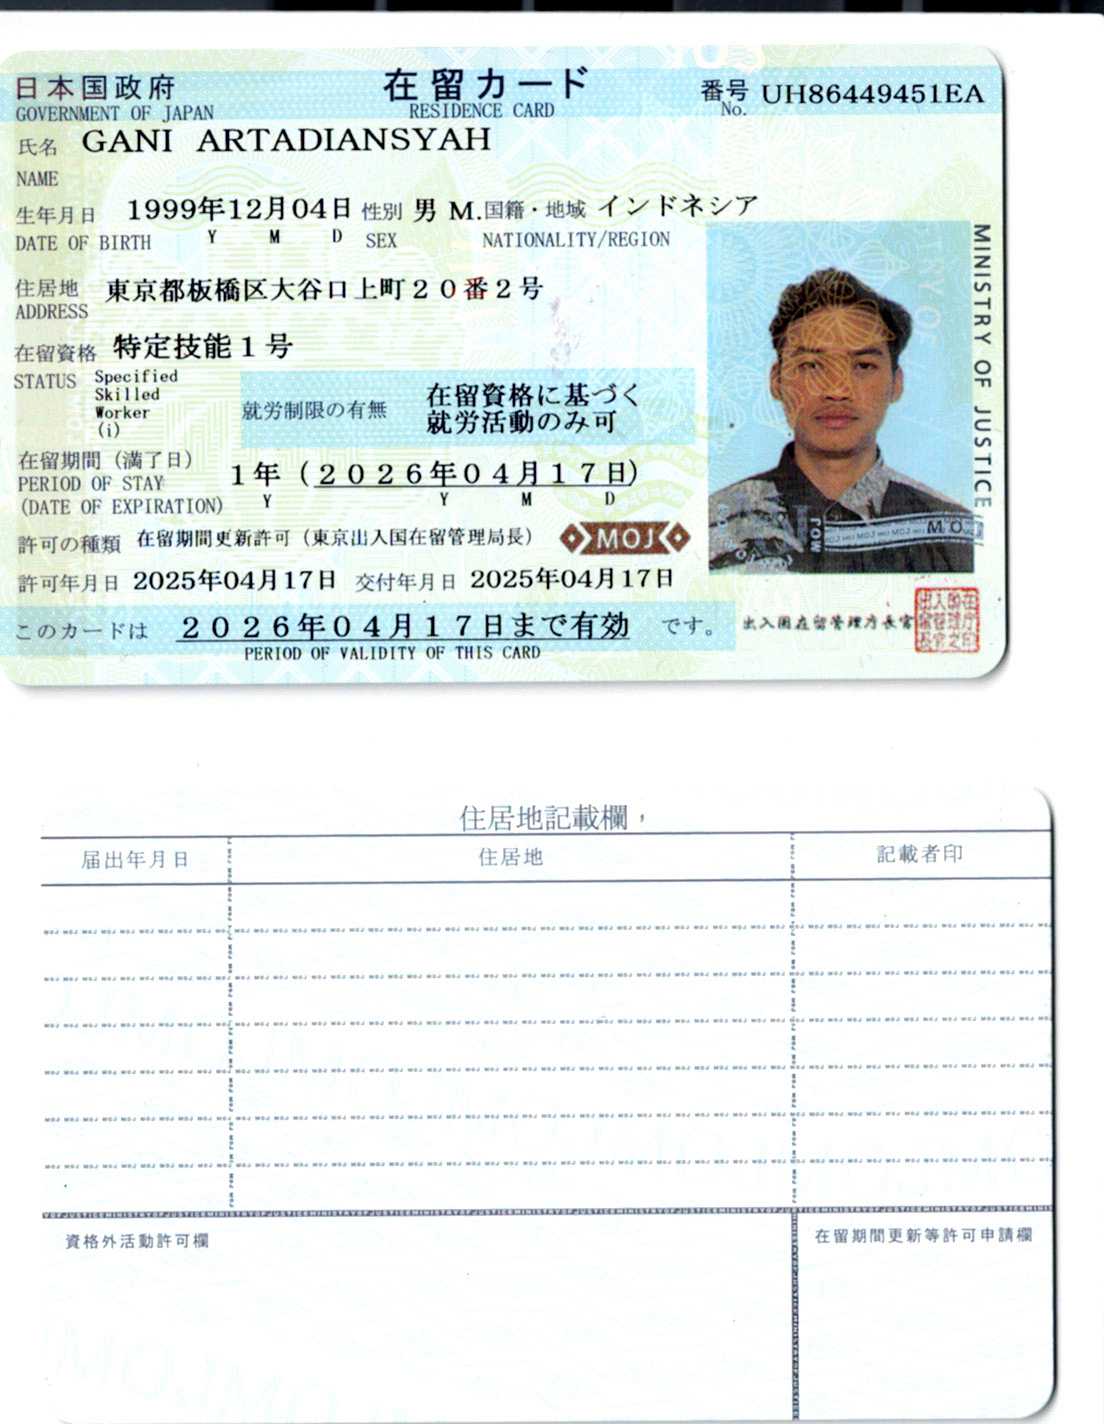 日本国政府 在留カード 番号 UH86449451EA
GOVERNMENT OF JAPAN RESIDENCE CARD No.
氏名 GANI ARTADIANSYAH
NAME
生年月日 1999年12月04日 性別 男 M. 国籍・地域 インドネシア
DATE OF BIRTH Y M D SEX NATIONALITY/REGION
住居地 東京都板橋区大谷口上町20番2号
ADDRESS
在留資格 特定技能1号
STATUS Specified
Skilled
Worker
(i)
就労制限の有無 在留資格に基づく
就労活動のみ可
在留期間(満了日) 1年(2026年04月17日)
PERIOD OF STAY
(DATE OF EXPIRATION) Y Y M D
許可の種類 在留期間更新許可(東京出入国在留管理局長) MOJ
許可年月日 2025年04月17日 交付年月日 2025年04月17日
このカードは 2026年04月17日まで有効 です。
PERIOD OF VALIDITY OF THIS CARD
MINISTRY OF JUSTICE
出入国在留管理庁長官
住居地記載欄
届出年月日 住居地 記載者印
資格外活動許可欄 在留期間更新等許可申請欄